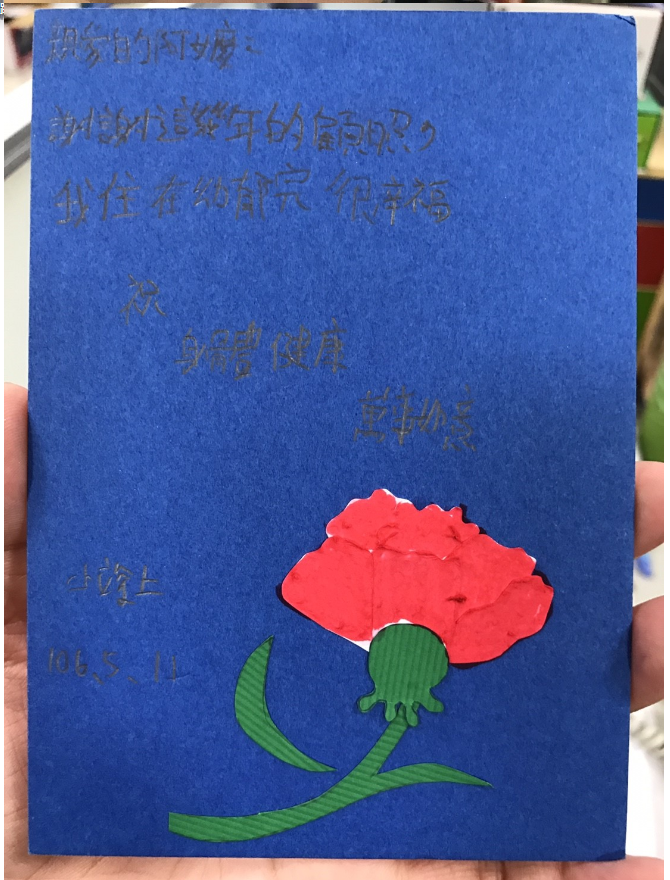 親愛的阿嬤：
謝謝這幾年的顧照,
我住在 很幸福
祝
身體健康
萬事如意
上
106、5、11